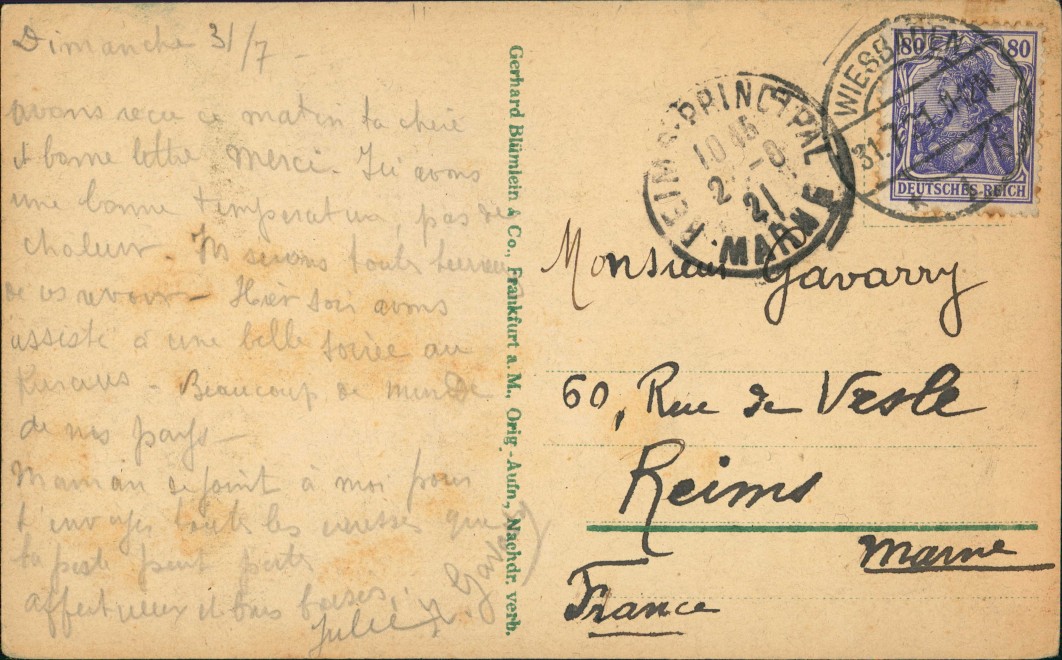 Dimanche 31/7 -
avons reçu ce matin ta chère
et bonne lettre Merci. Ici avons
une bonne température, pas de
chaleur. Ns serons toutes heureuses
de vs revoir - Hier soir avons
assisté à une belle soirée au
Kursaus - Beaucoup de monde
de nos pays -
Maman se joint à moi pour
t'envoyer toutes les caresses que
la poste peut porter
affectueux et bons baisers.
Julie Gavarry
Gerhard Blümlein & Co., Frankfurt a. M., Orig-Aufn., Nachdr. verb.
REIMS-PRINCIPAL
10 45
2 - 8
21
MARNE
WIESBADEN
31.7.21. 11-12V.
80 80
DEUTSCHES REICH
Monsieur Gavarry
60, Rue de Vesle
Reims
Marne
France